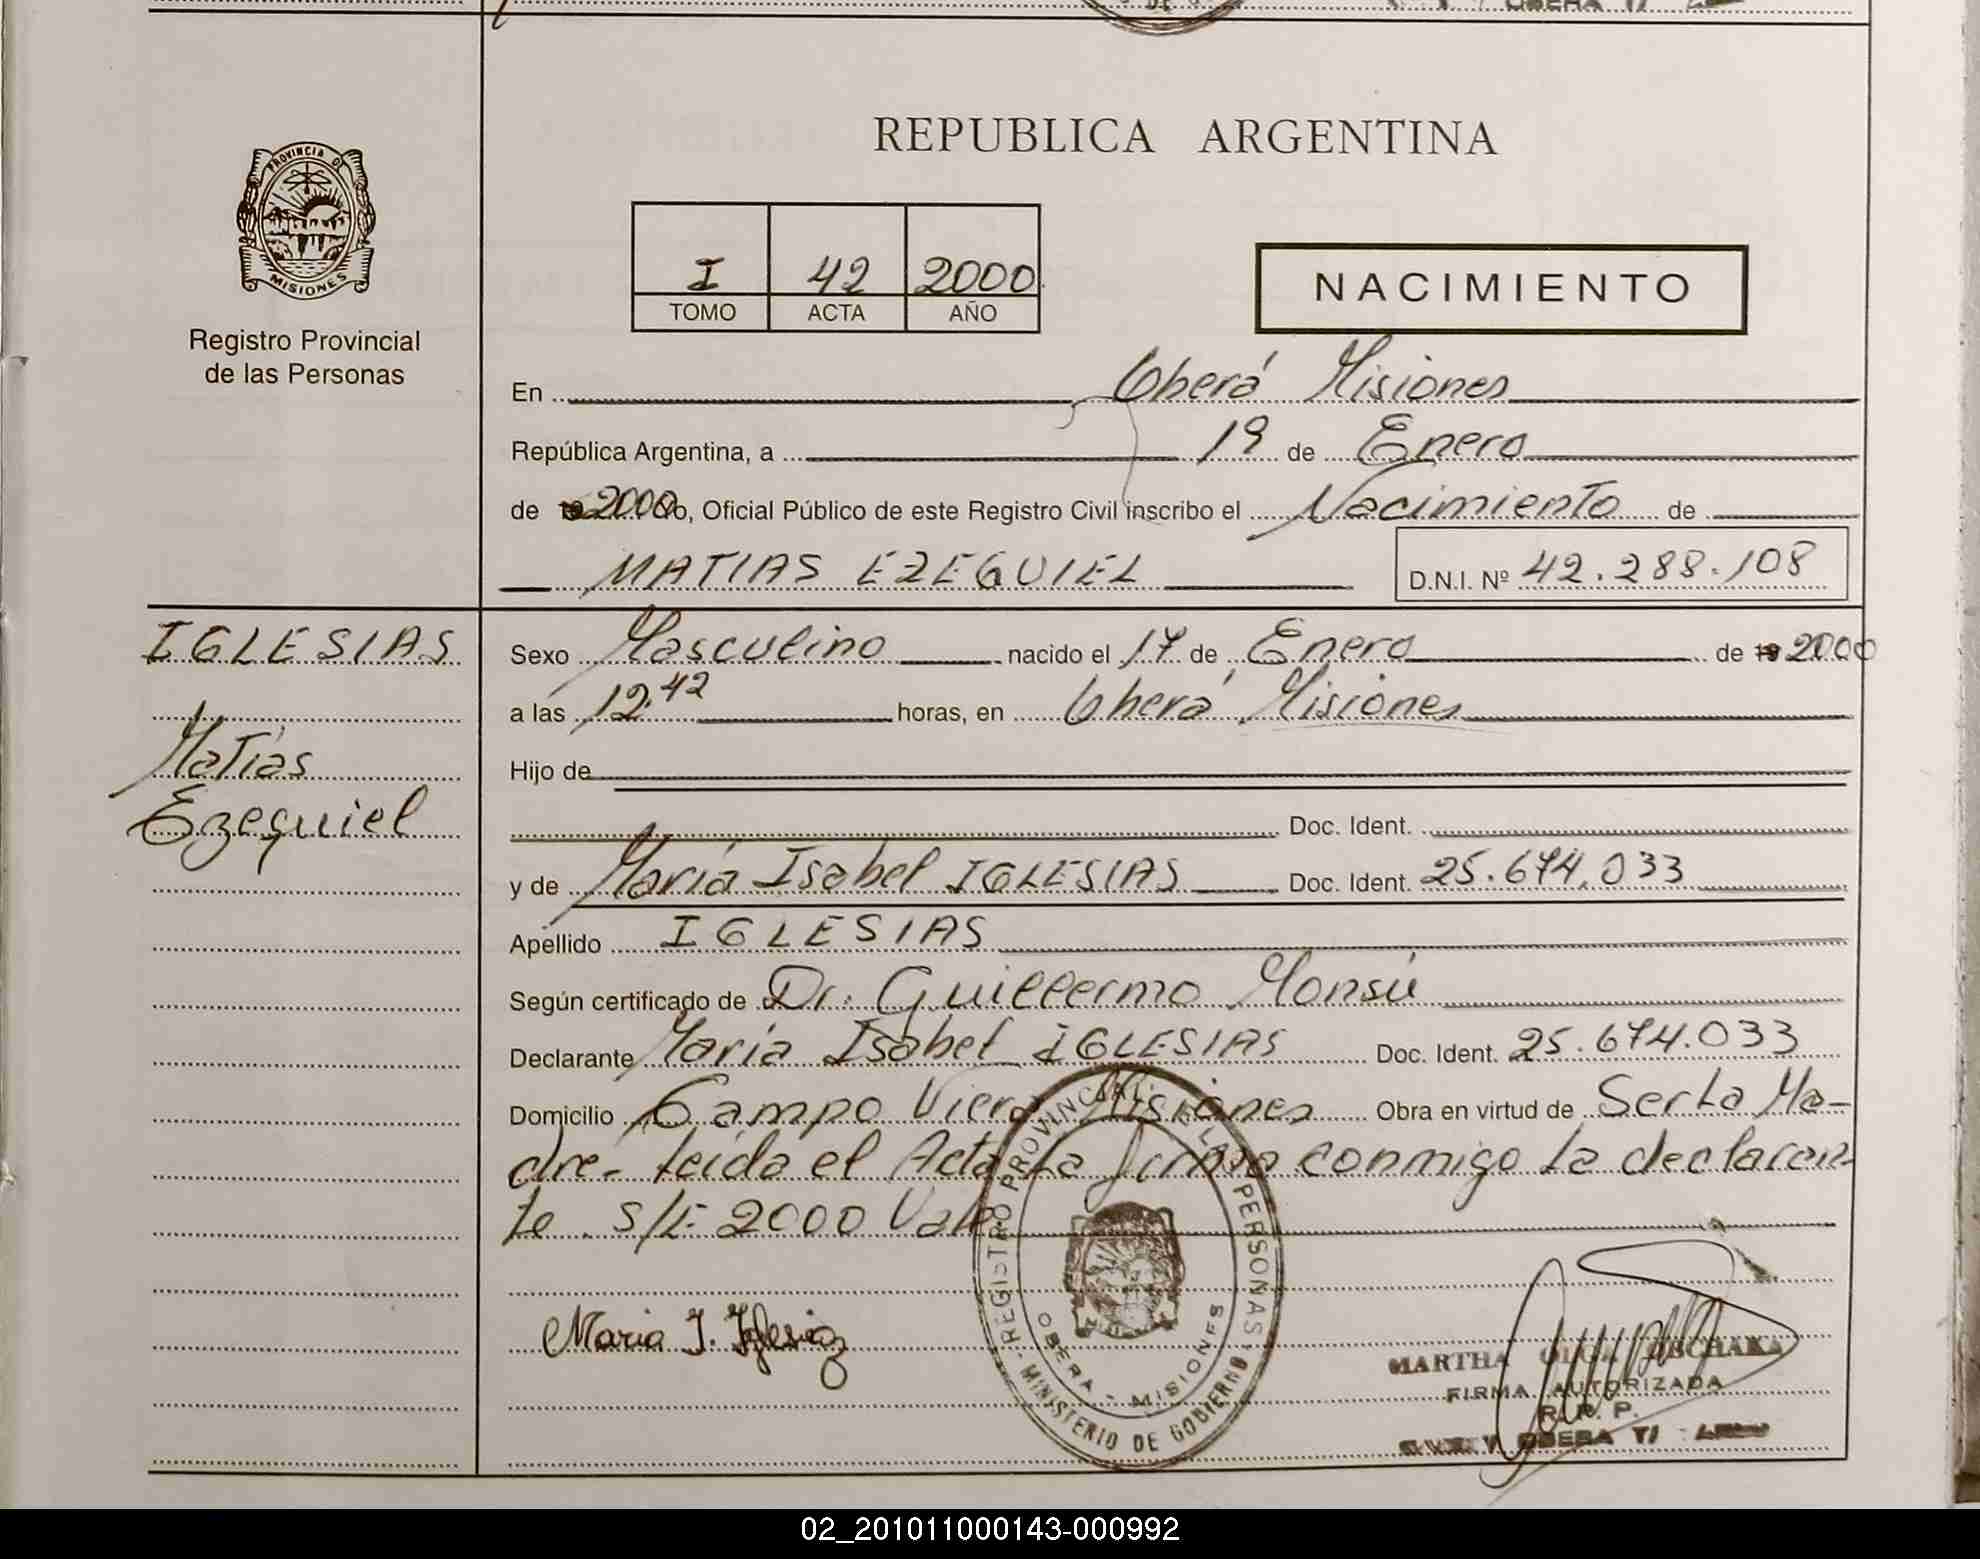 REPUBLICA ARGENTINA
PROVINCIA DE
MISIONES
Registro Provincial
de las Personas
I 42 2000
TOMO ACTA AÑO
NACIMIENTO
En Oberá Misiones
República Argentina, a 19 de Enero
de 2000 yo, Oficial Público de este Registro Civil inscribo el Nacimiento de
MATIAS EZEQUIEL D.N.I. Nº 42.288.108
IGLESIAS
Matías
Ezequiel
Sexo Masculino nacido el 17 de Enero de 19 2000
a las 12,42 horas, en Oberá Misiones
Hijo de
Doc. Ident.
y de María Isabel IGLESIAS Doc. Ident. 25.674.033
Apellido IGLESIAS
Según certificado de Dr. Guillermo Monsú
Declarante María Isabel IGLESIAS Doc. Ident. 25.674.033
Domicilio Campo Viera Misiones Obra en virtud de Ser la Ma-
dre- leída el Acta la firma conmigo la declaran-
te. S/E 2000 Vale
REGISTRO PROVINCIAL DE LAS PERSONAS
OBERA - MISIONES
MINISTERIO DE GOBIERNO
Maria I. Iglesias
MARTHA OLGA
FIRMA AUTORIZADA
R. R. P.
OBERA
02_201011000143-000992